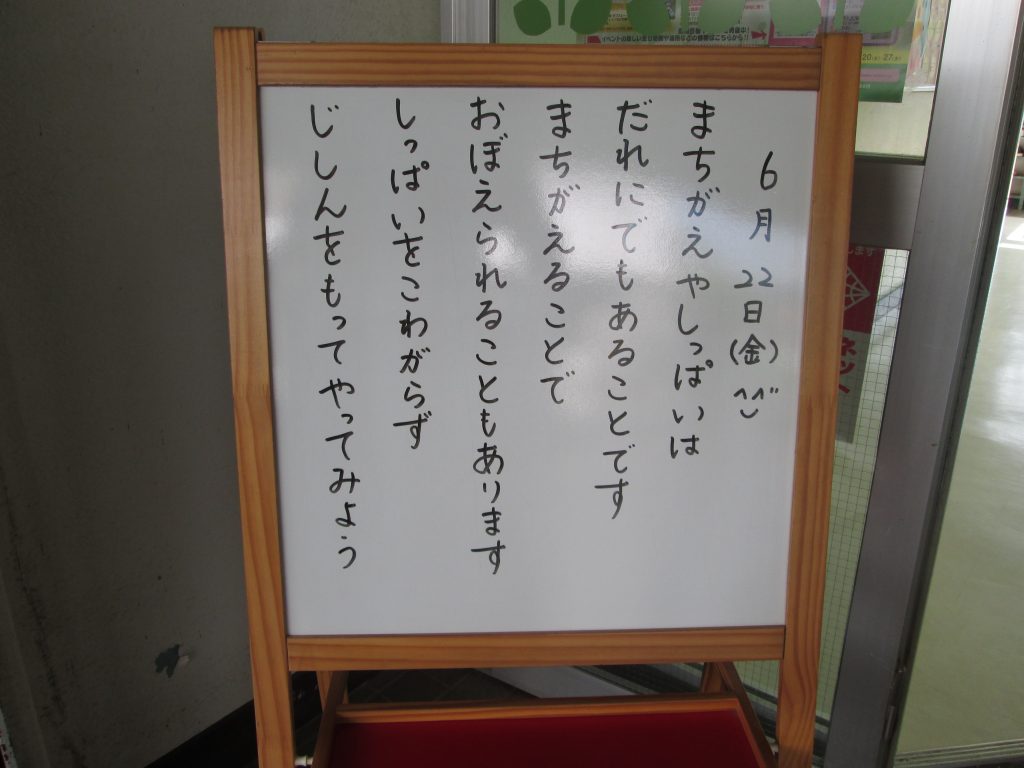 6月22日(金)^^
まちがえやしっぱいは
だれにでもあることです
まちがえることで
おぼえられることもあります
しっぱいをこわがらず
じしんをもってやってみよう
ネット